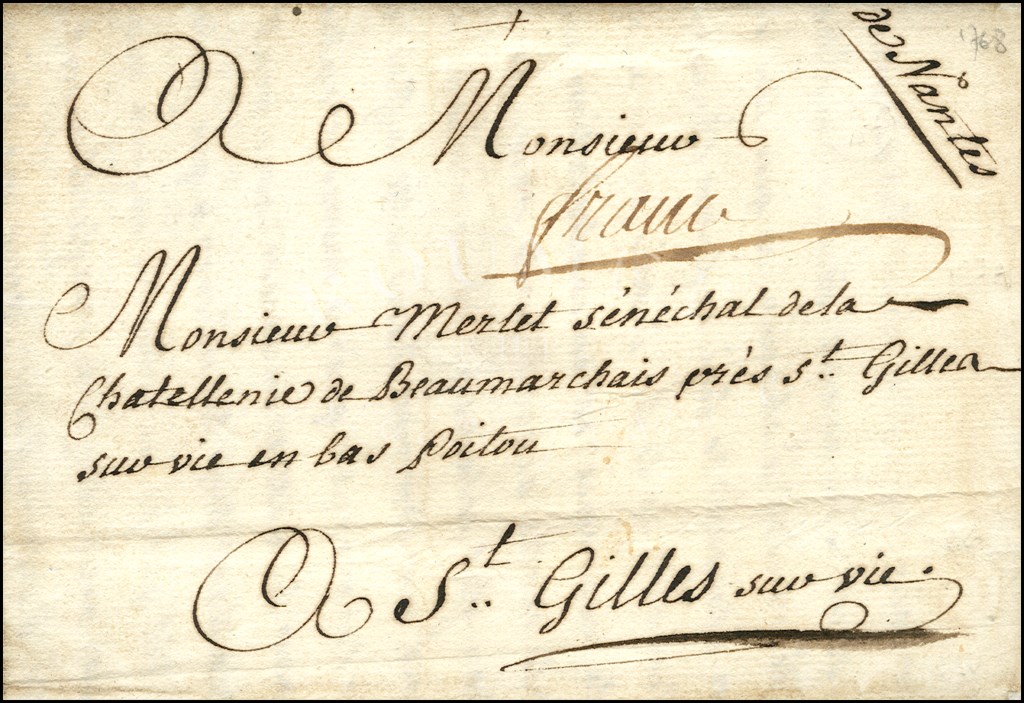 de Nantes
1768
A Monsieur
franc
Monsieur Merlet sénéchal de la
Chatellenie de Beaumarchais près St. Gilles
sur vie en bas Poitou
A St. Gilles sur vie.